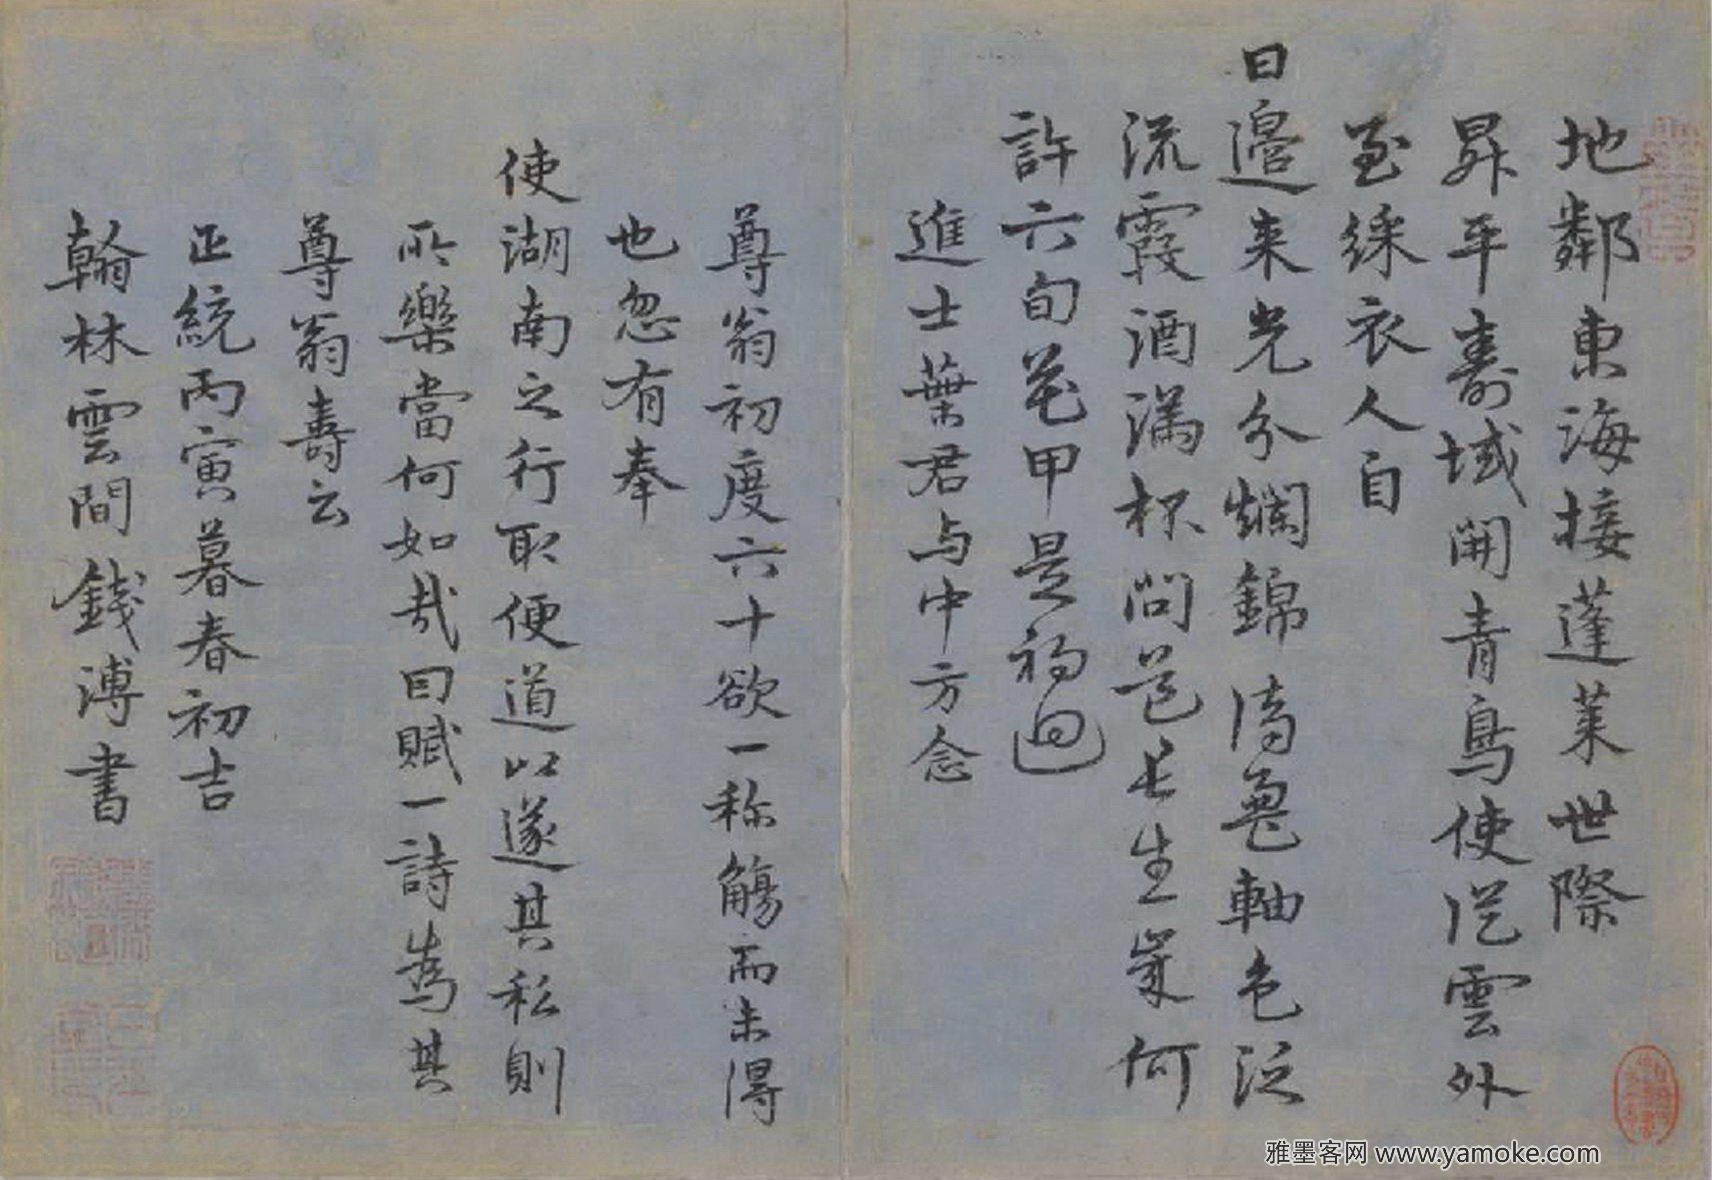 地鄰東海接蓬萊世際
昇平壽域開青鳥使從雲外
至綵衣人自
日邊來光分爛錦濤軸色泛
流霞酒滿杯問道長生歲何
許六旬花甲是初迴
進士葉君与中方念
尊翁初度六十欲一称觴而未得
也忽有奉
使湖南之行取便道以遂其私則
所樂當何如哉因賦一詩為其
尊翁壽云
正統丙寅暮春初吉
翰林雲間錢溥書
雅墨客网 www.yamoke.com